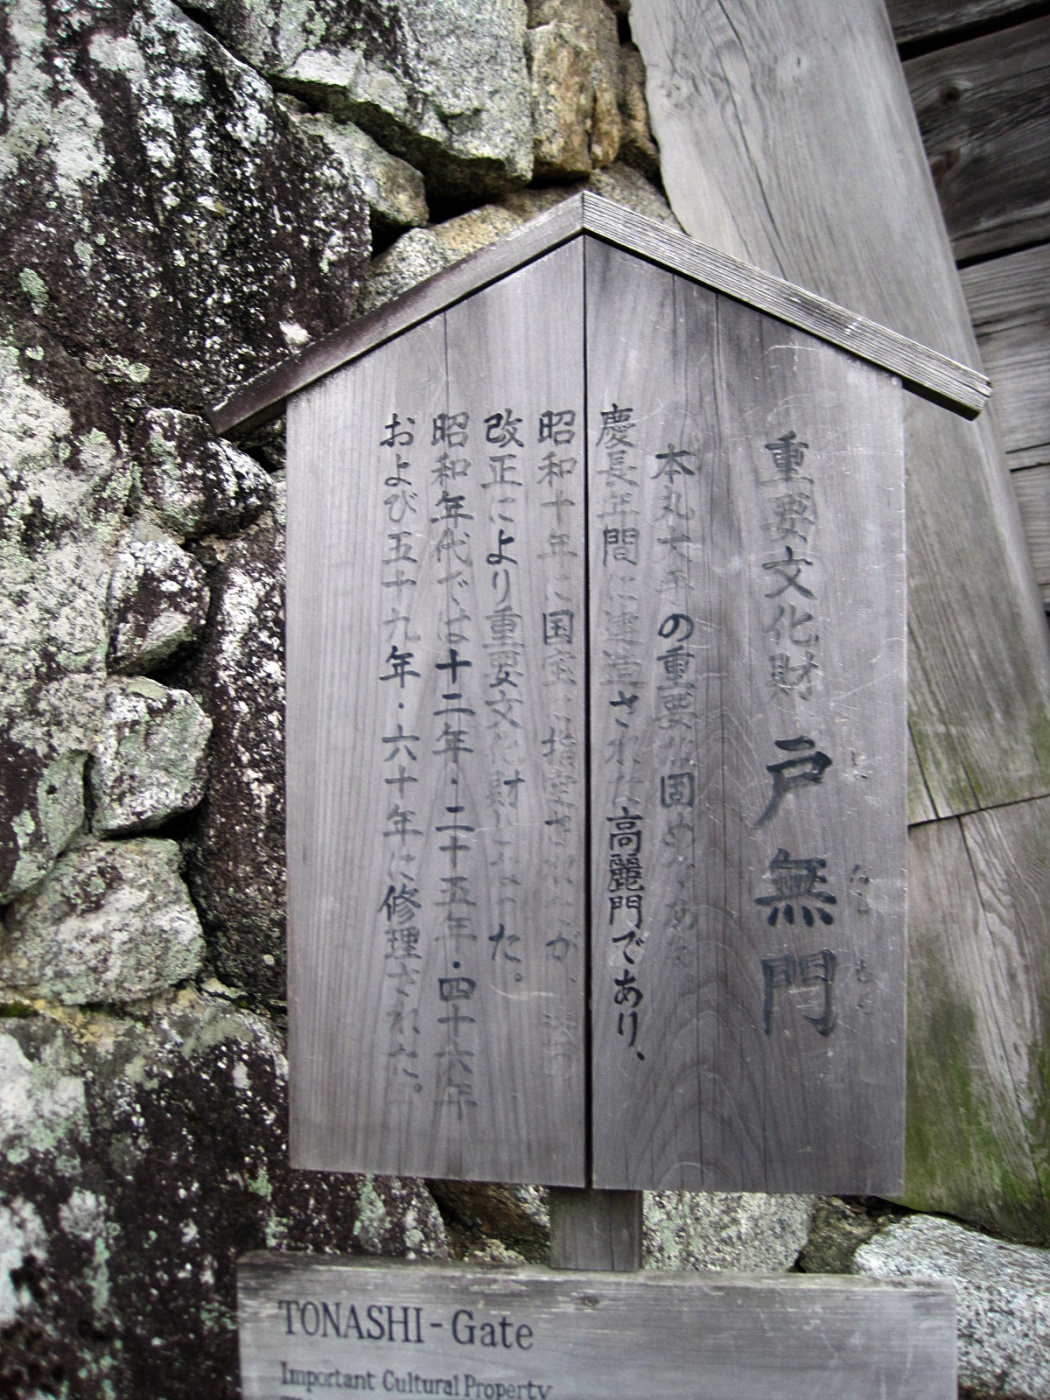 重要文化財 戸無門
本丸大手の重要な固めである
慶長年間に建造された高麗門であり、
昭和十年に国宝に指定されたが、法
改正により重要文化財となった。
昭和年代では十二年・二十五年・四十六年
および五十九年・六十年に修理された。
TONASHI-Gate
Important Cultural Property